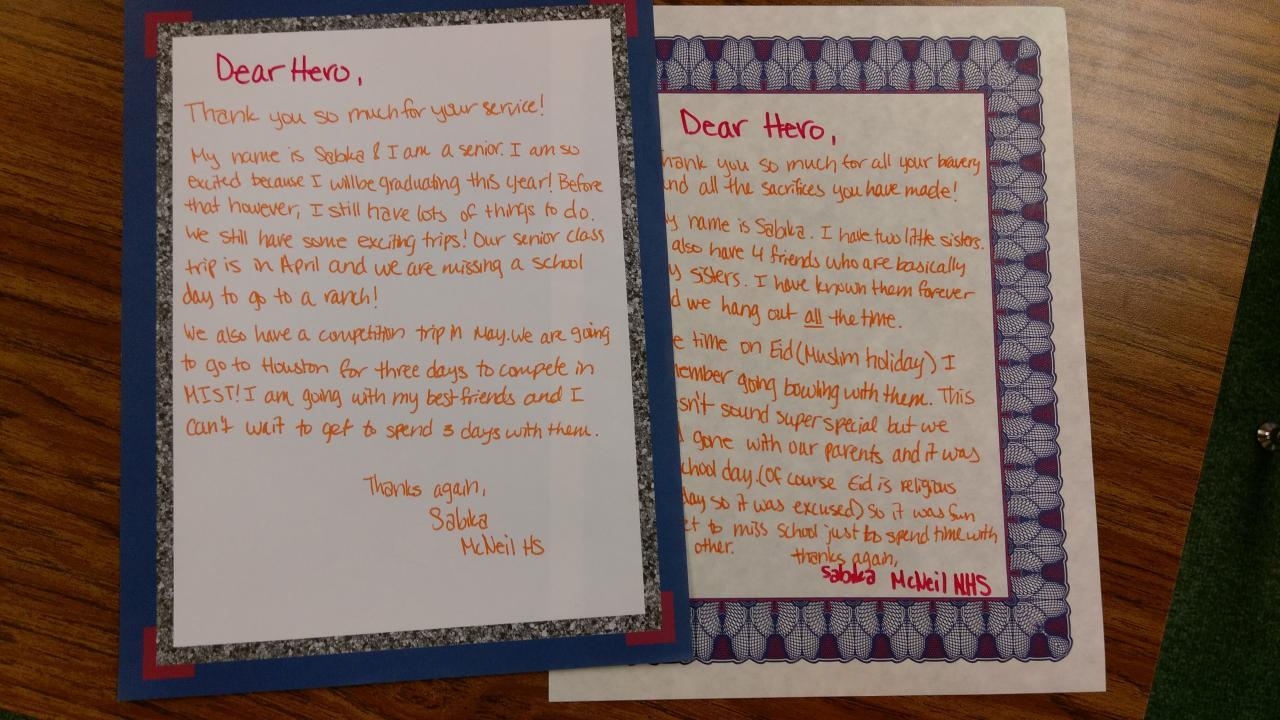 Dear Hero,
Thank you so much for your service!
My name is Sabika & I am a senior. I am so
excited because I will be graduating this year! Before
that however, I still have lots of things to do.
We still have some exciting trips! Our senior class
trip is in April and we are missing a school
day to go to a ranch!
We also have a competition trip in May. We are going
to go to Houston for three days to compete in
MIST! I am going with my best friends and I
can't wait to get to spend 3 days with them.
Thanks again,
Sabika
McNeil HS
Dear Hero,
hank you so much for all your bravery
nd all the sacrifices you have made!
y name is Sabika. I have two little sisters.
also have 4 friends who are basically
y sisters. I have known them forever
d we hang out all the time.
e time on Eid (Muslim Holiday) I
member going bowling with them. This
sn't sound super special but we
gone with our parents and it was
chool day. (Of course Eid is religious
day so it was excused) So it was fun
et to miss school just to spend time with
other.
thanks again,
Sabika McNeil NHS